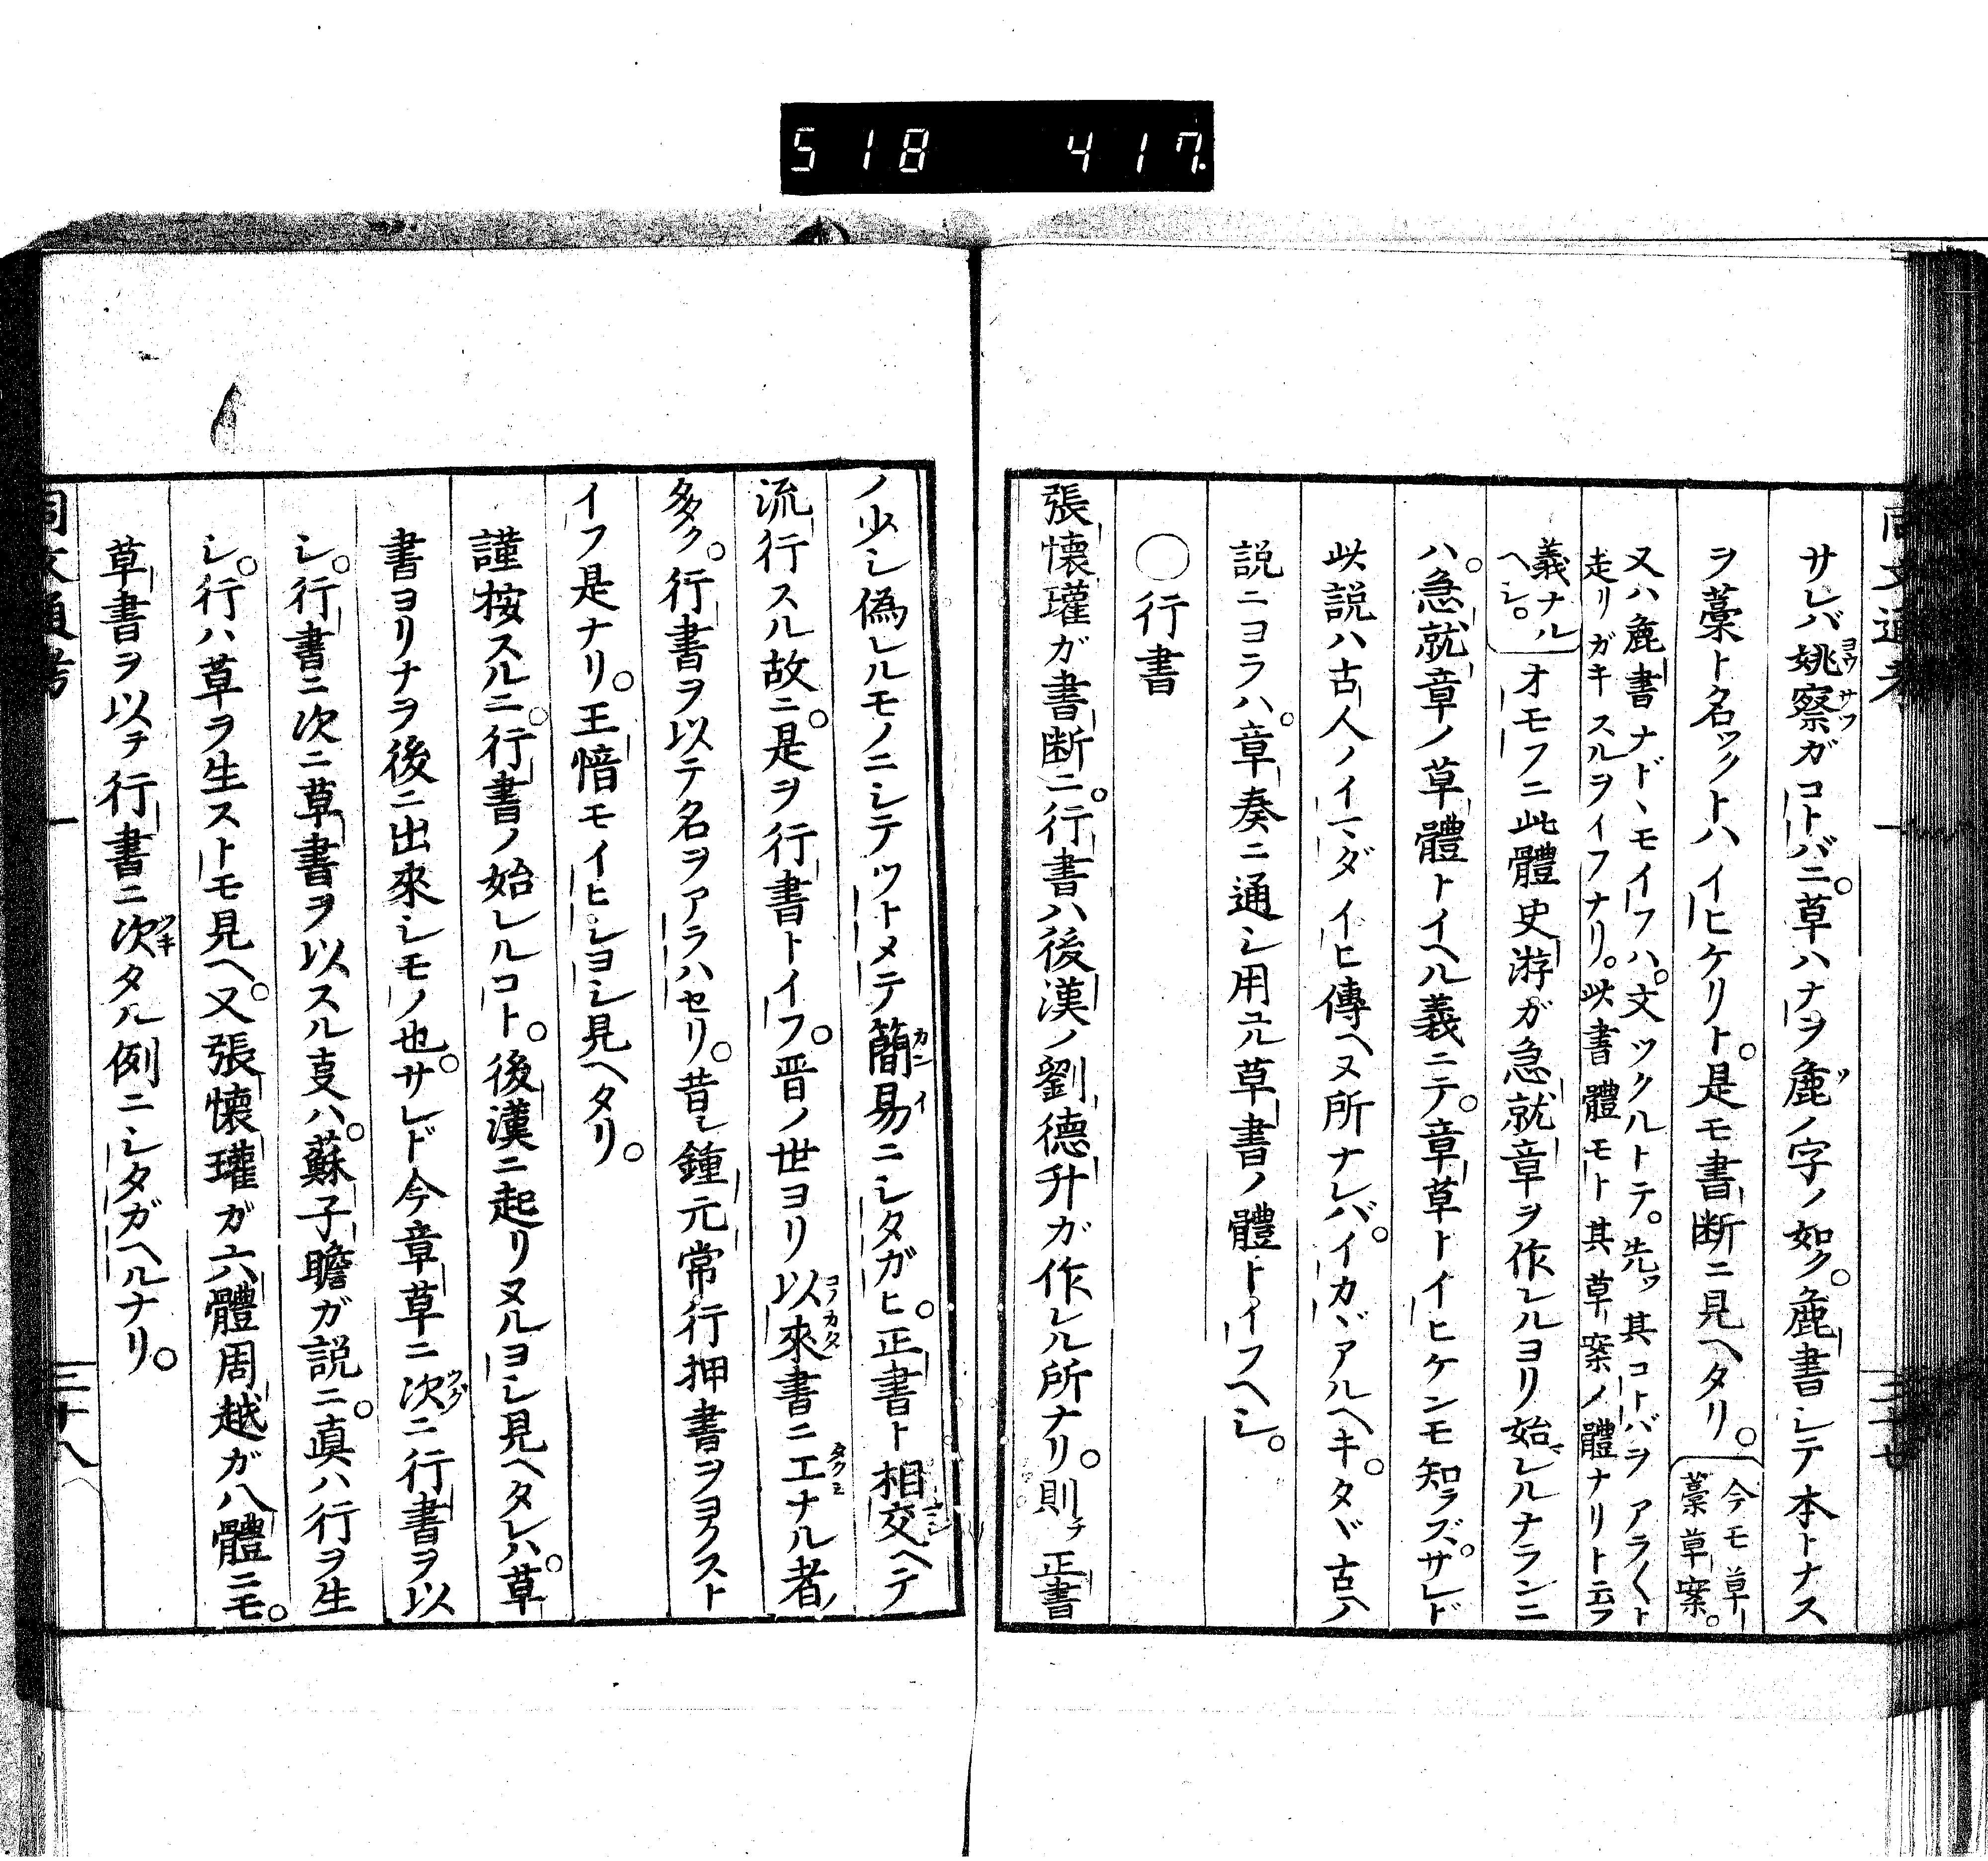 518 417
同文通考 一 三十七
サレバ姚察ガコトバニ。草ハナヲ麁ノ字ノ如ク。麁書シテ本トナス
ヨウ サツ
ヲ藁ト名ツクトハイヒケリト。是モ書断ニ見ヘタリ。
今モ草
藁草案。
又ハ麁書ナド、モイフハ。文ツクルトテ。先ツ其コトバヲアラ〱ト
走リガキスルヲイフナリ。此書體モト其草案ノ體ナリト云フ
義ナル
ヘシ。
オモフニ此體史游ガ急就章ヲ作レルヨリ始レルナランニ
ハ。急就章ノ草體トイヘル義ニテ。章草トイヒケンモ知ラズ。サレド
此説ハ古人ノイマダイヒ傳ヘヌ所ナレバ。イカヾアルヘキ。タヾ古ノ
説ニヨラハ。章奏ニ通シ用ユル草書ノ體トイフヘシ。
〇行書
張懷瓘ガ書断ニ。行書ハ後漢ノ劉德升ガ作レル所ナリ。則チ正書
ノ少シ偽レルモノニシテツトメテ簡易ニシタガヒ。正書ト相交ヘテ
カン イ
流行スル故ニ。是ヲ行書トイフ。晋ノ世ヨリ以來書ニ工ナル者ノ
ヨノカタ
タクミ
多ク。行書ヲ以テ名ヲアラハセリ。昔シ鍾元常行押書ヲヨクスト
イフ是ナリ。王愔モイヒシヨシ見ヘタリ。
謹按スルニ。行書ノ始レルコト。後漢ニ起リヌルヨシ見ヘタレハ。草
書ヨリナヲ後ニ出來シモノ也。サレド今章草ニ次ニ行書ヲ以
ツグ
シ。行書ニ次ニ草書ヲ以スル叓ハ。蘇子瞻ガ説ニ。真ハ行ヲ生
シ。行ハ草ヲ生ストモ見ヘ。又張懷瓘ガ六體周越ガ八體ニモ。
草書ヲ以チ行書ニ次タル例ニシタガヘルナリ。
ツキ
同文通考 一 三十八